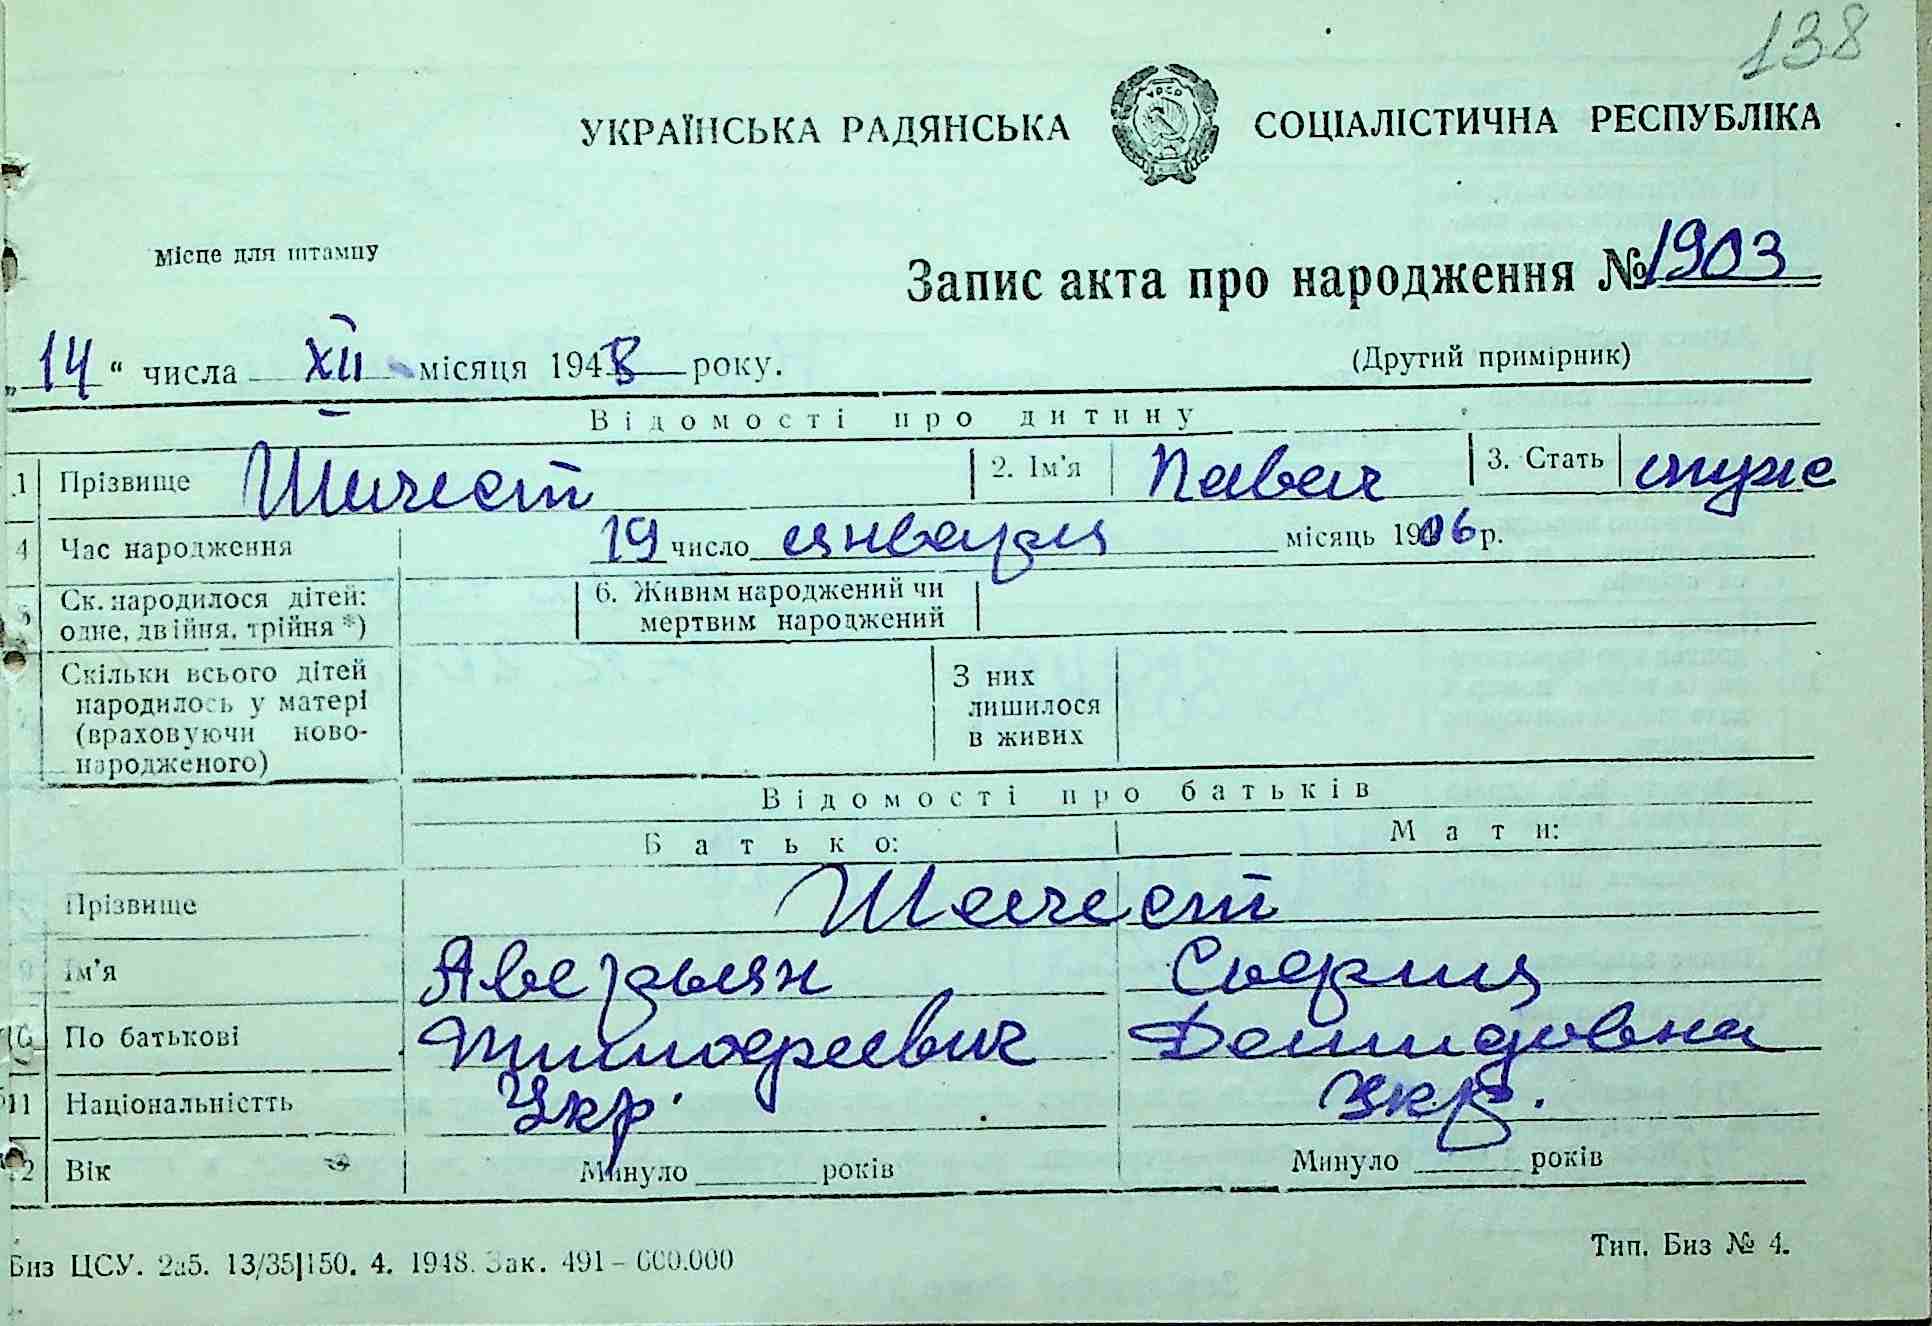 138
УКРАЇНСЬКА РАДЯНСЬКА СОЦІАЛІСТИЧНА РЕСПУБЛІКА
УРСР
Місце для штампу
Запис акта про народження № 1903
„14“ числа XII місяця 1948 року.
(Другий примірник)
Відомості про дитину
1 Прізвище Шелест 2. Ім'я Павел 3. Стать муже
4 Час народження 19 число января місяць 1906 р.
5 Ск. народилося дітей: одне, двійня, трійня *) 6. Живим народжений чи мертвим народжений
Скільки всього дітей народилось у матері (враховуючи новонародженого) З них лишилося в живих
Відомості про батьків
Батько: Мати:
Прізвище Шелест
9 Ім'я Аверьян София
10 По батькові Тимофеевич Демидовна
11 Національністть Укр. Укр.
12 Вік Минуло ______ років Минуло ______ років
Биз ЦСУ. 2а5. 13/35|150. 4. 1948. Зак. 491 – 600.000
Тип. Биз № 4.